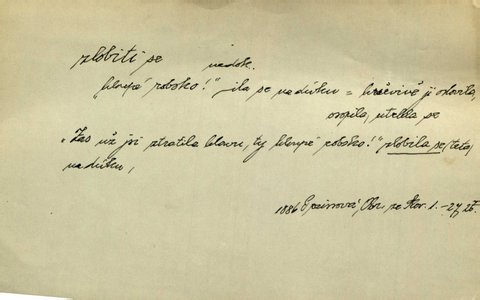 zlobiti se na dok.
„hloupé robsko!“ jila se na dívku = hněvivě ji oslovila,
osopila, utrhla se
„Zas už jsi ztratila hlavu, ty hloupé robsko!“ zlobila se, teta,
na dívku,
1886 Gazinová, Obr. ze Slov. 1. - 27